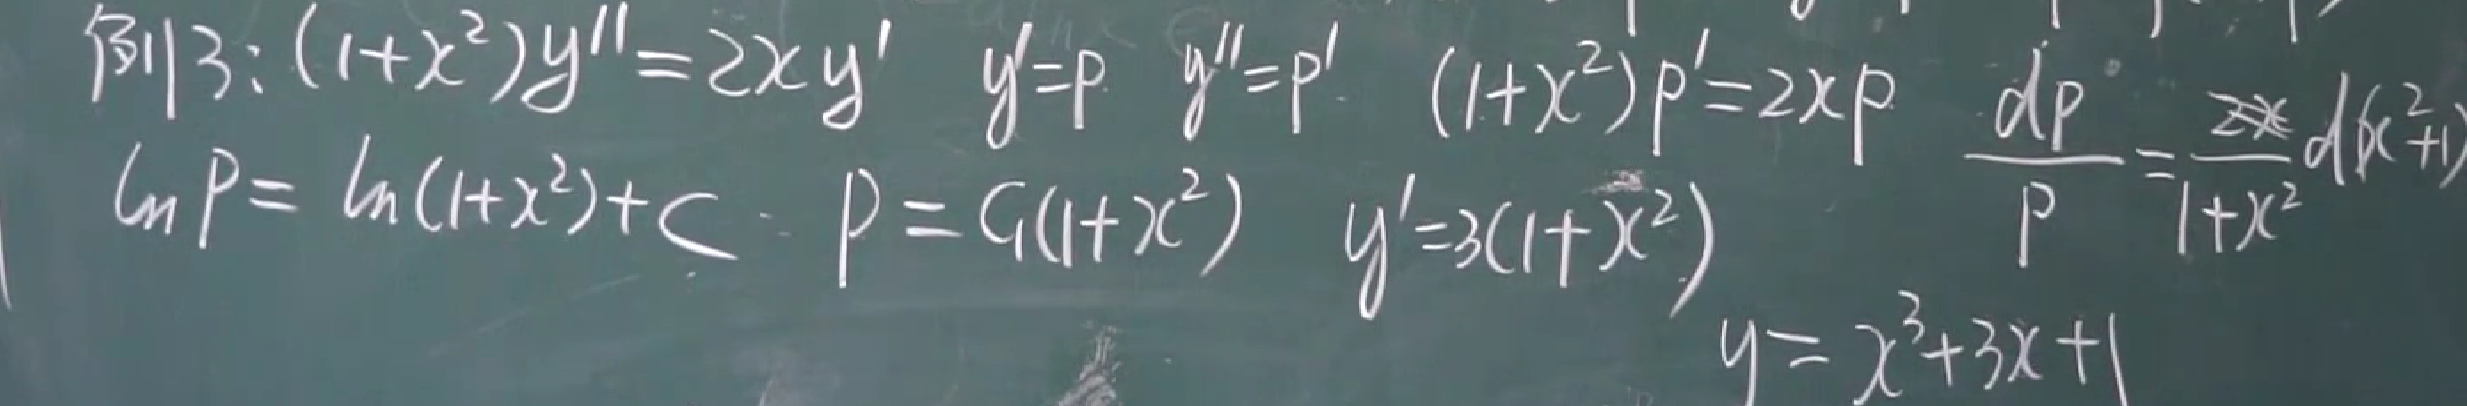 例3: (1+x²)y''=2xy' y'=p y''=p' (1+x²)p'=2xp dp/p = 2x/(1+x²) d(x²+1)
ln p = ln(1+x²)+C p = C₁(1+x²) y'=3(1+x²)
y = x³+3x+1